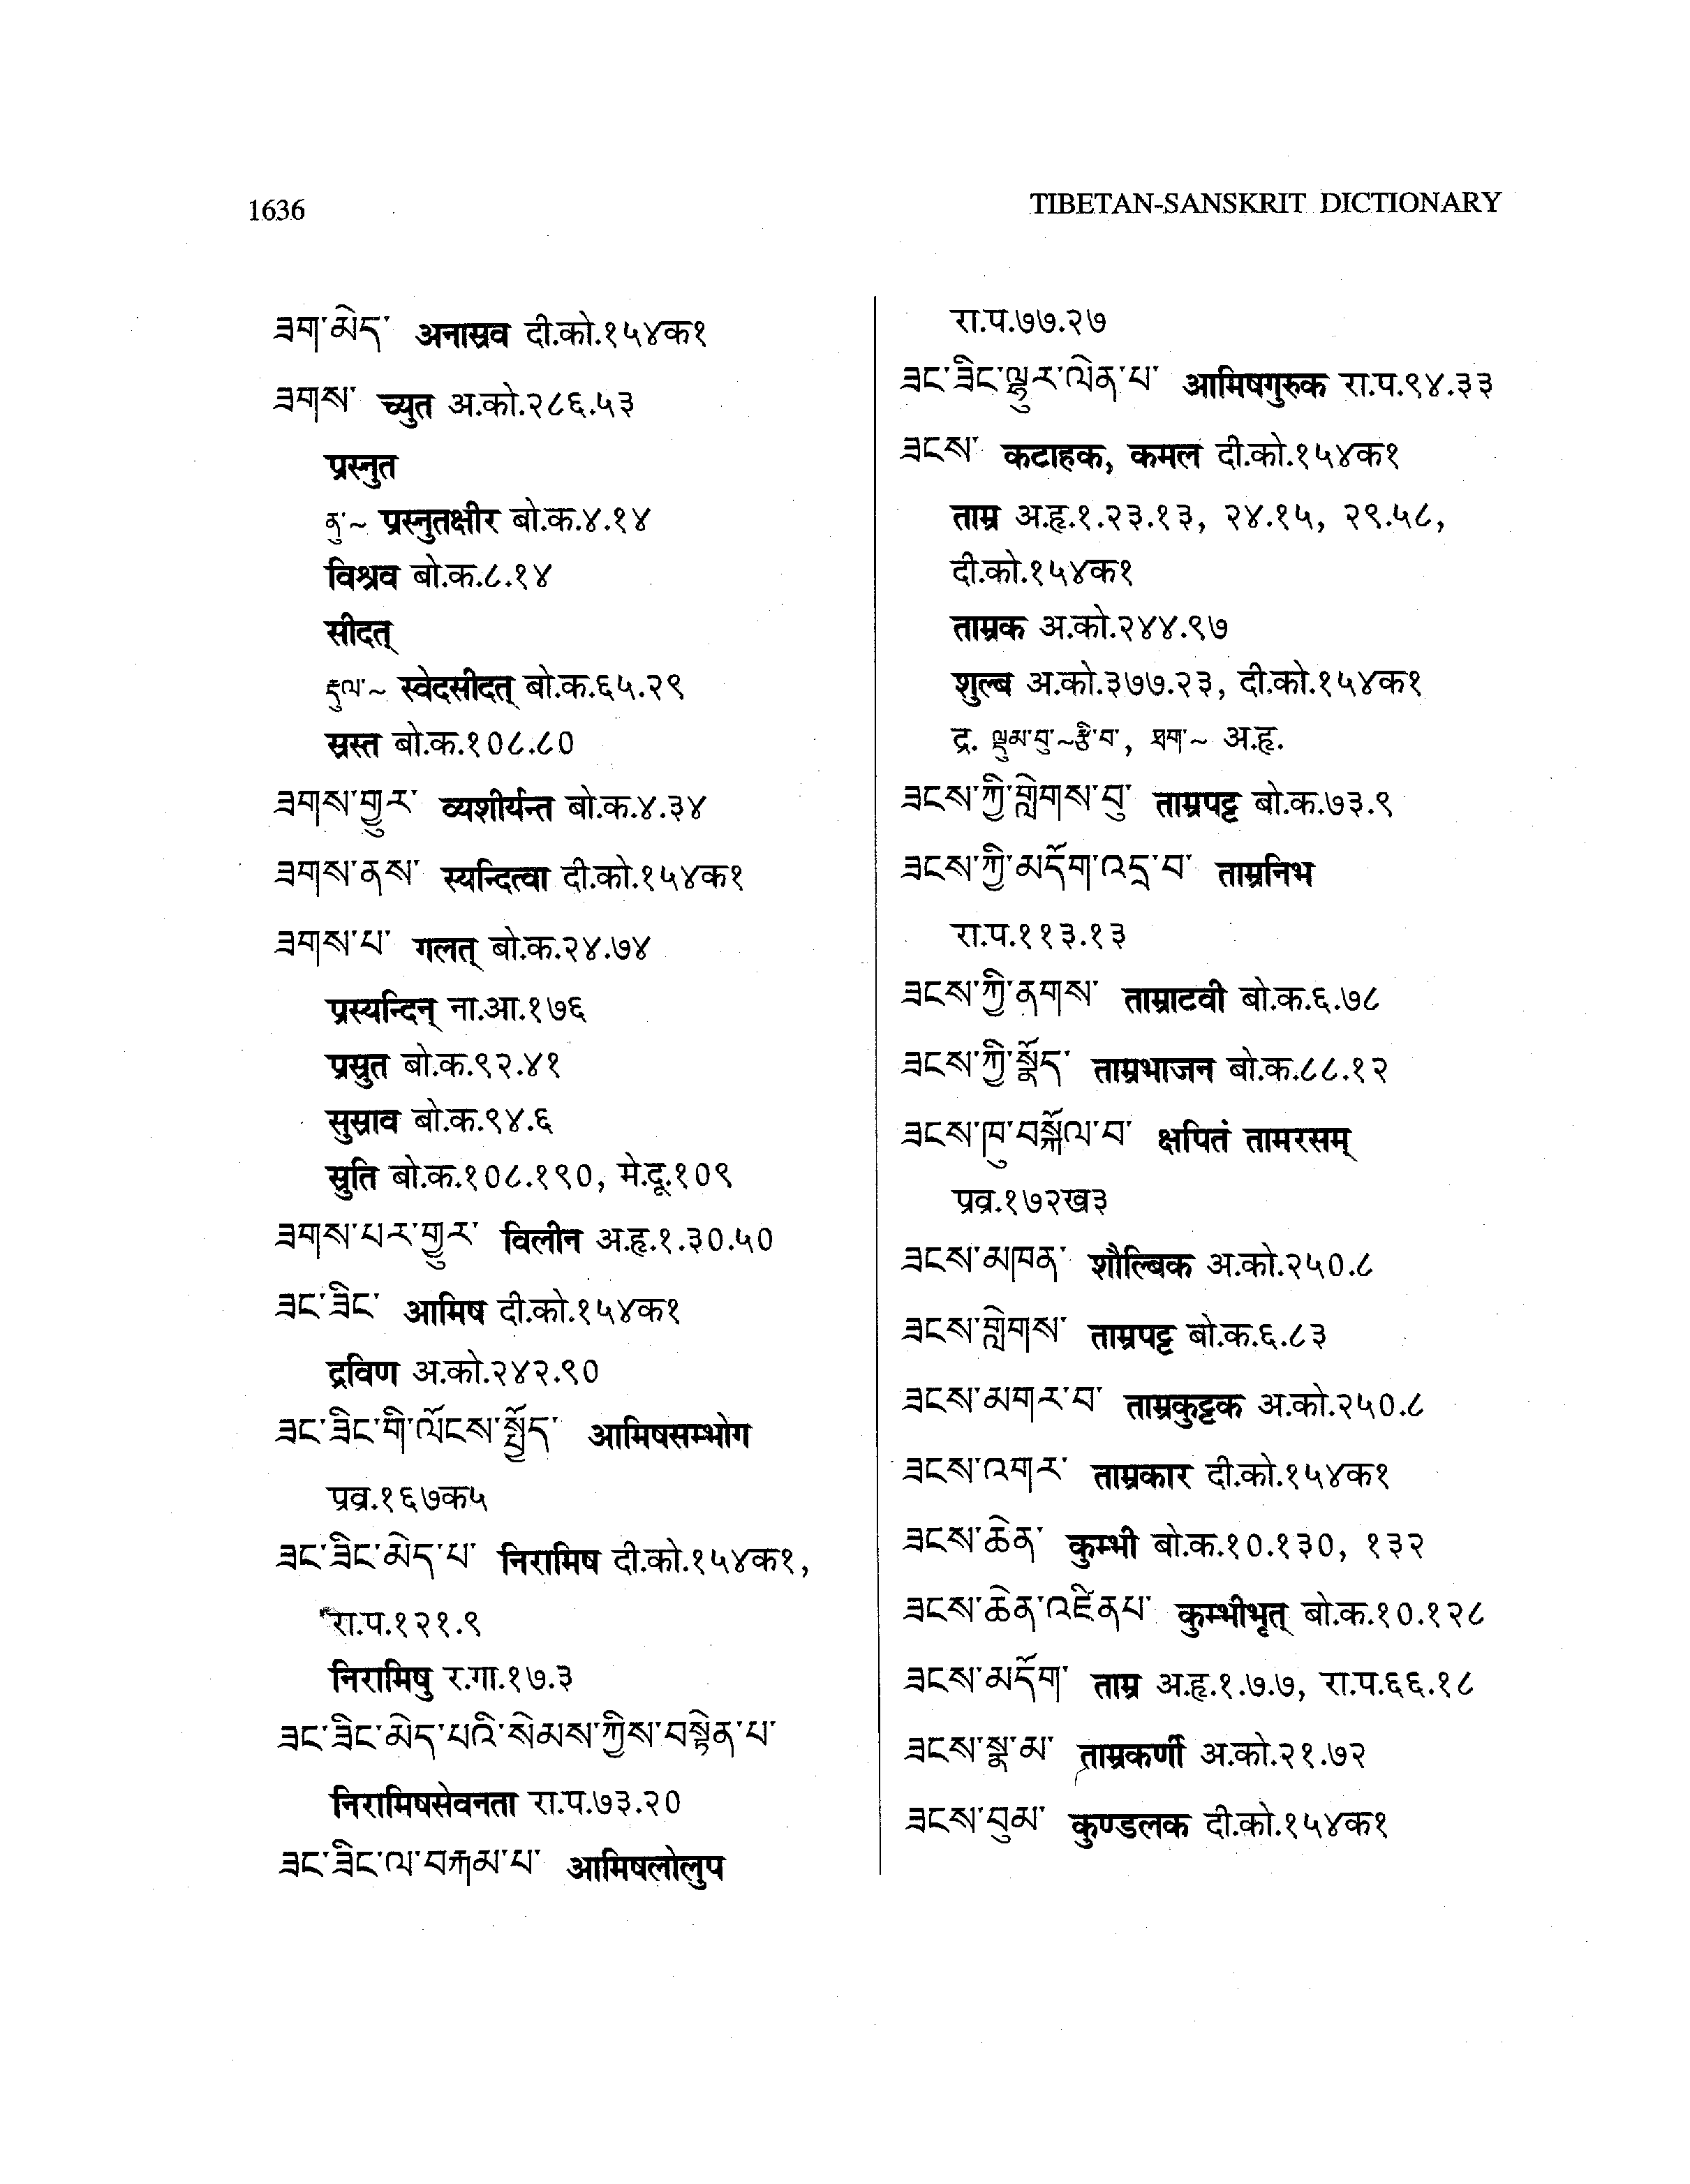 1636
TIBETAN-SANSKRIT DICTIONARY
ཟག་མེད་ अनास्रव दी.को.१५४क१
ཟགས་ च्युत अ.को.२८६.५३
प्रस्नुत
ནུ་~ प्रस्नुतक्षीर बो.क.४.१४
विश्रव बो.क.८.१४
सीदत्
རྡུལ་~ स्वेदसीदत् बो.क.६५.२९
स्रस्त बो.क.१०८.८०
ཟགས་གྱུར་ व्यशीर्यन्त बो.क.४.३४
ཟགས་ནས་ स्यन्दित्वा दी.को.१५४क१
ཟགས་པ་ गलत् बो.क.२४.७४
प्रस्यन्दिन् ना.आ.१७६
प्रस्रुत बो.क.९२.४१
सुस्राव बो.क.९४.६
स्रुति बो.क.१०८.१९०, मे.दू.१०९
ཟགས་པར་གྱུར་ विलीन अ.हृ.१.३०.५०
ཟང་ཟིང་ आमिष दी.को.१५४क१
द्रविण अ.को.२४२.९०
ཟང་ཟིང་གི་ལོངས་སྤྱོད་ आमिषसम्भोग
प्रव्र.१६७क५
ཟང་ཟིང་མེད་པ་ निरामिष दी.को.१५४क१,
रा.प.१२१.९
निरामिषु र.गा.१७.३
ཟང་ཟིང་མེད་པའི་སེམས་ཀྱིས་བསྟེན་པ་
निरामिषसेवनता रा.प.७३.२०
ཟང་ཟིང་ལ་བརྐམ་པ་ आमिषलोलुप
रा.प.७७.२७
ཟང་ཟིང་ལྷུར་ལེན་པ་ आमिषगुरुक रा.प.९४.३३
ཟངས་ कटाहक, कमल दी.को.१५४क१
ताम्र अ.हृ.१.२३.१३, २४.१५, २९.५८,
दी.को.१५४क१
ताम्रक अ.को.२४४.९७
शुल्ब अ.को.३७७.२३, दी.को.१५४क१
द्र. ལྡུམ་བུ་~རྩི་བ་, ཐག་~ अ.हृ.
ཟངས་ཀྱི་གླེགས་བུ་ ताम्रपट्ट बो.क.७३.९
ཟངས་ཀྱི་མདོག་འདྲ་བ་ ताम्रनिभ
रा.प.११३.१३
ཟངས་ཀྱི་ནགས་ ताम्राटवी बो.क.६.७८
ཟངས་ཀྱི་སྣོད་ ताम्रभाजन बो.क.८८.१२
ཟངས་ཁུ་བསྐོལ་བ་ क्षपितं तामरसम्
प्रव्र.१७२ख३
ཟངས་མཁན་ शौल्बिक अ.को.२५०.८
ཟངས་གླེགས་ ताम्रपट्ट बो.क.६.८३
ཟངས་མགར་བ་ ताम्रकुट्टक अ.को.२५०.८
ཟངས་འགར་ ताम्रकार दी.को.१५४क१
ཟངས་ཆེན་ कुम्भी बो.क.१०.१३०, १३२
ཟངས་ཆེན་འཛིནཔ་ कुम्भीभृत् बो.क.१०.१२८
ཟངས་མདོག་ ताम्र अ.हृ.१.७.७, रा.प.६६.१८
ཟངས་སྣ་མ་ ताम्रकर्णी अ.को.२१.७२
ཟངས་བུམ་ कुण्डलक दी.को.१५४क१